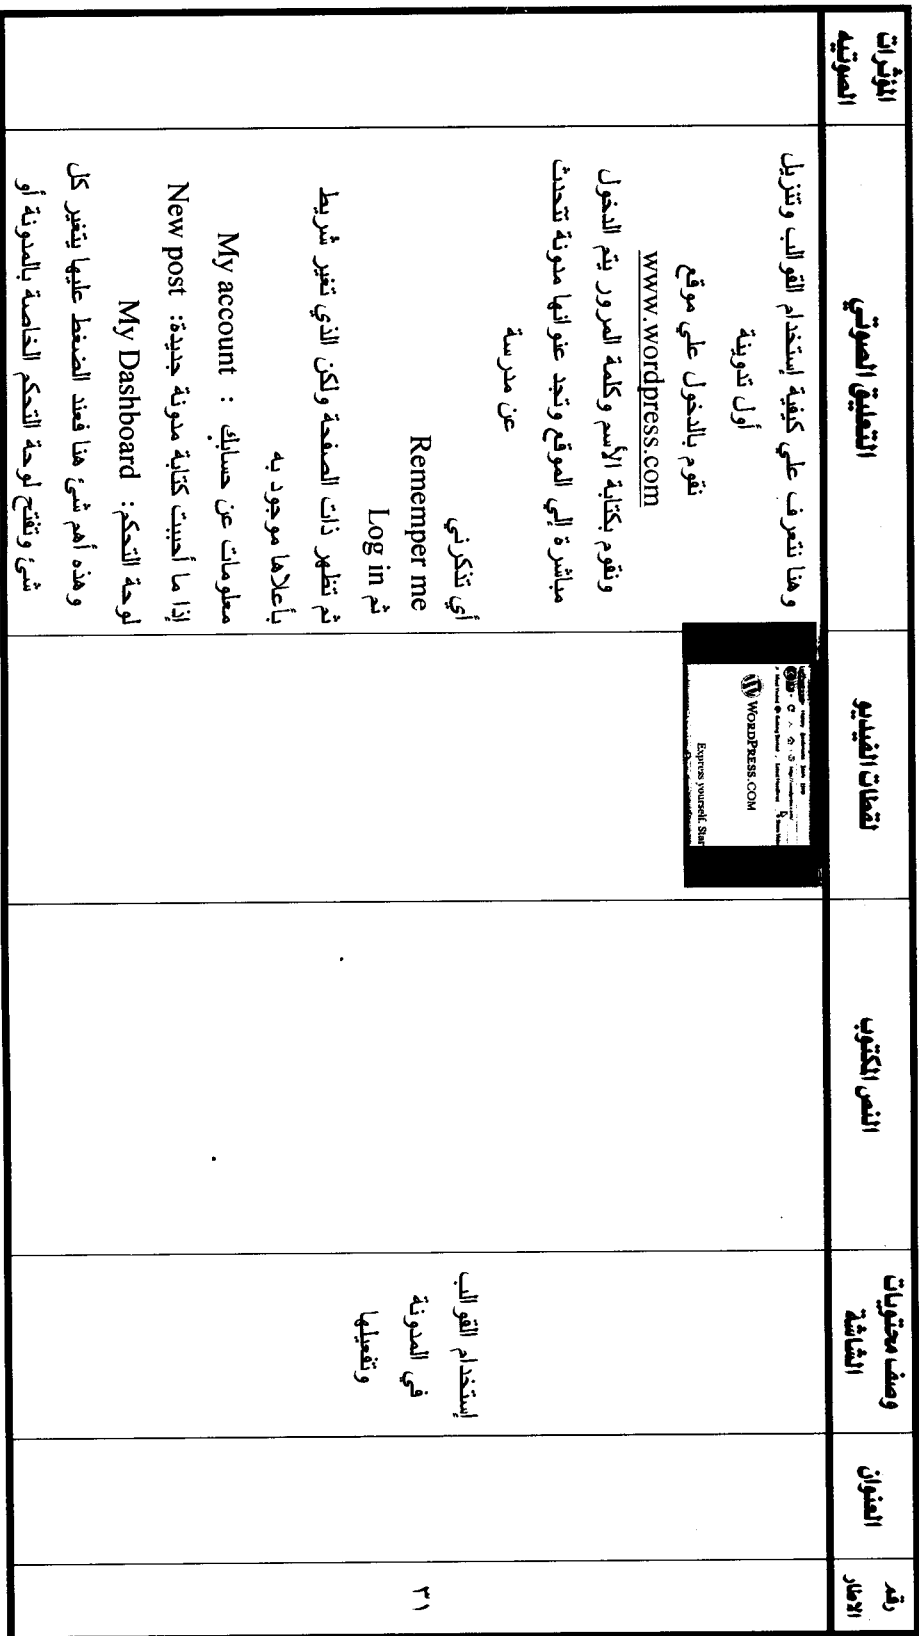 رقم
الاطار
العنوان
وصف محتويات
الشاشة
النص المكتوب
لقطات الفيديو
التعليق الصوتي
المؤثرات
الصوتيه
٣١
إستخدام القوالب
في المدونة
وتفعيلها
WORDPRESS.COM
Express yourself. Star
وهنا نتعرف علي كيفية إستخدام القوالب وتنزيل
أول تدوينة
نقوم بالدخول علي موقع
www.wordpress.com
ونقوم بكتابة الأسم وكلمة المرور يتم الدخول
مباشرة إلي الموقع وتجد عنوانها مدونة تتحدث
عن مدرسة
أي تذكرني
Rememper me
ثم Log in
ثم تظهر ذات الصفحة ولكن الذي تغير شريط
بأعلاها موجود به
معلومات عن حسابك : My account
إذا ما أحببت كتابة مدونة جديدة: New post
لوحة التحكم: My Dashboard
وهذه أهم شئ هنا فعند الضغط عليها يتغير كل
شئ وتفتح لوحة التحكم الخاصة بالمدونة أو